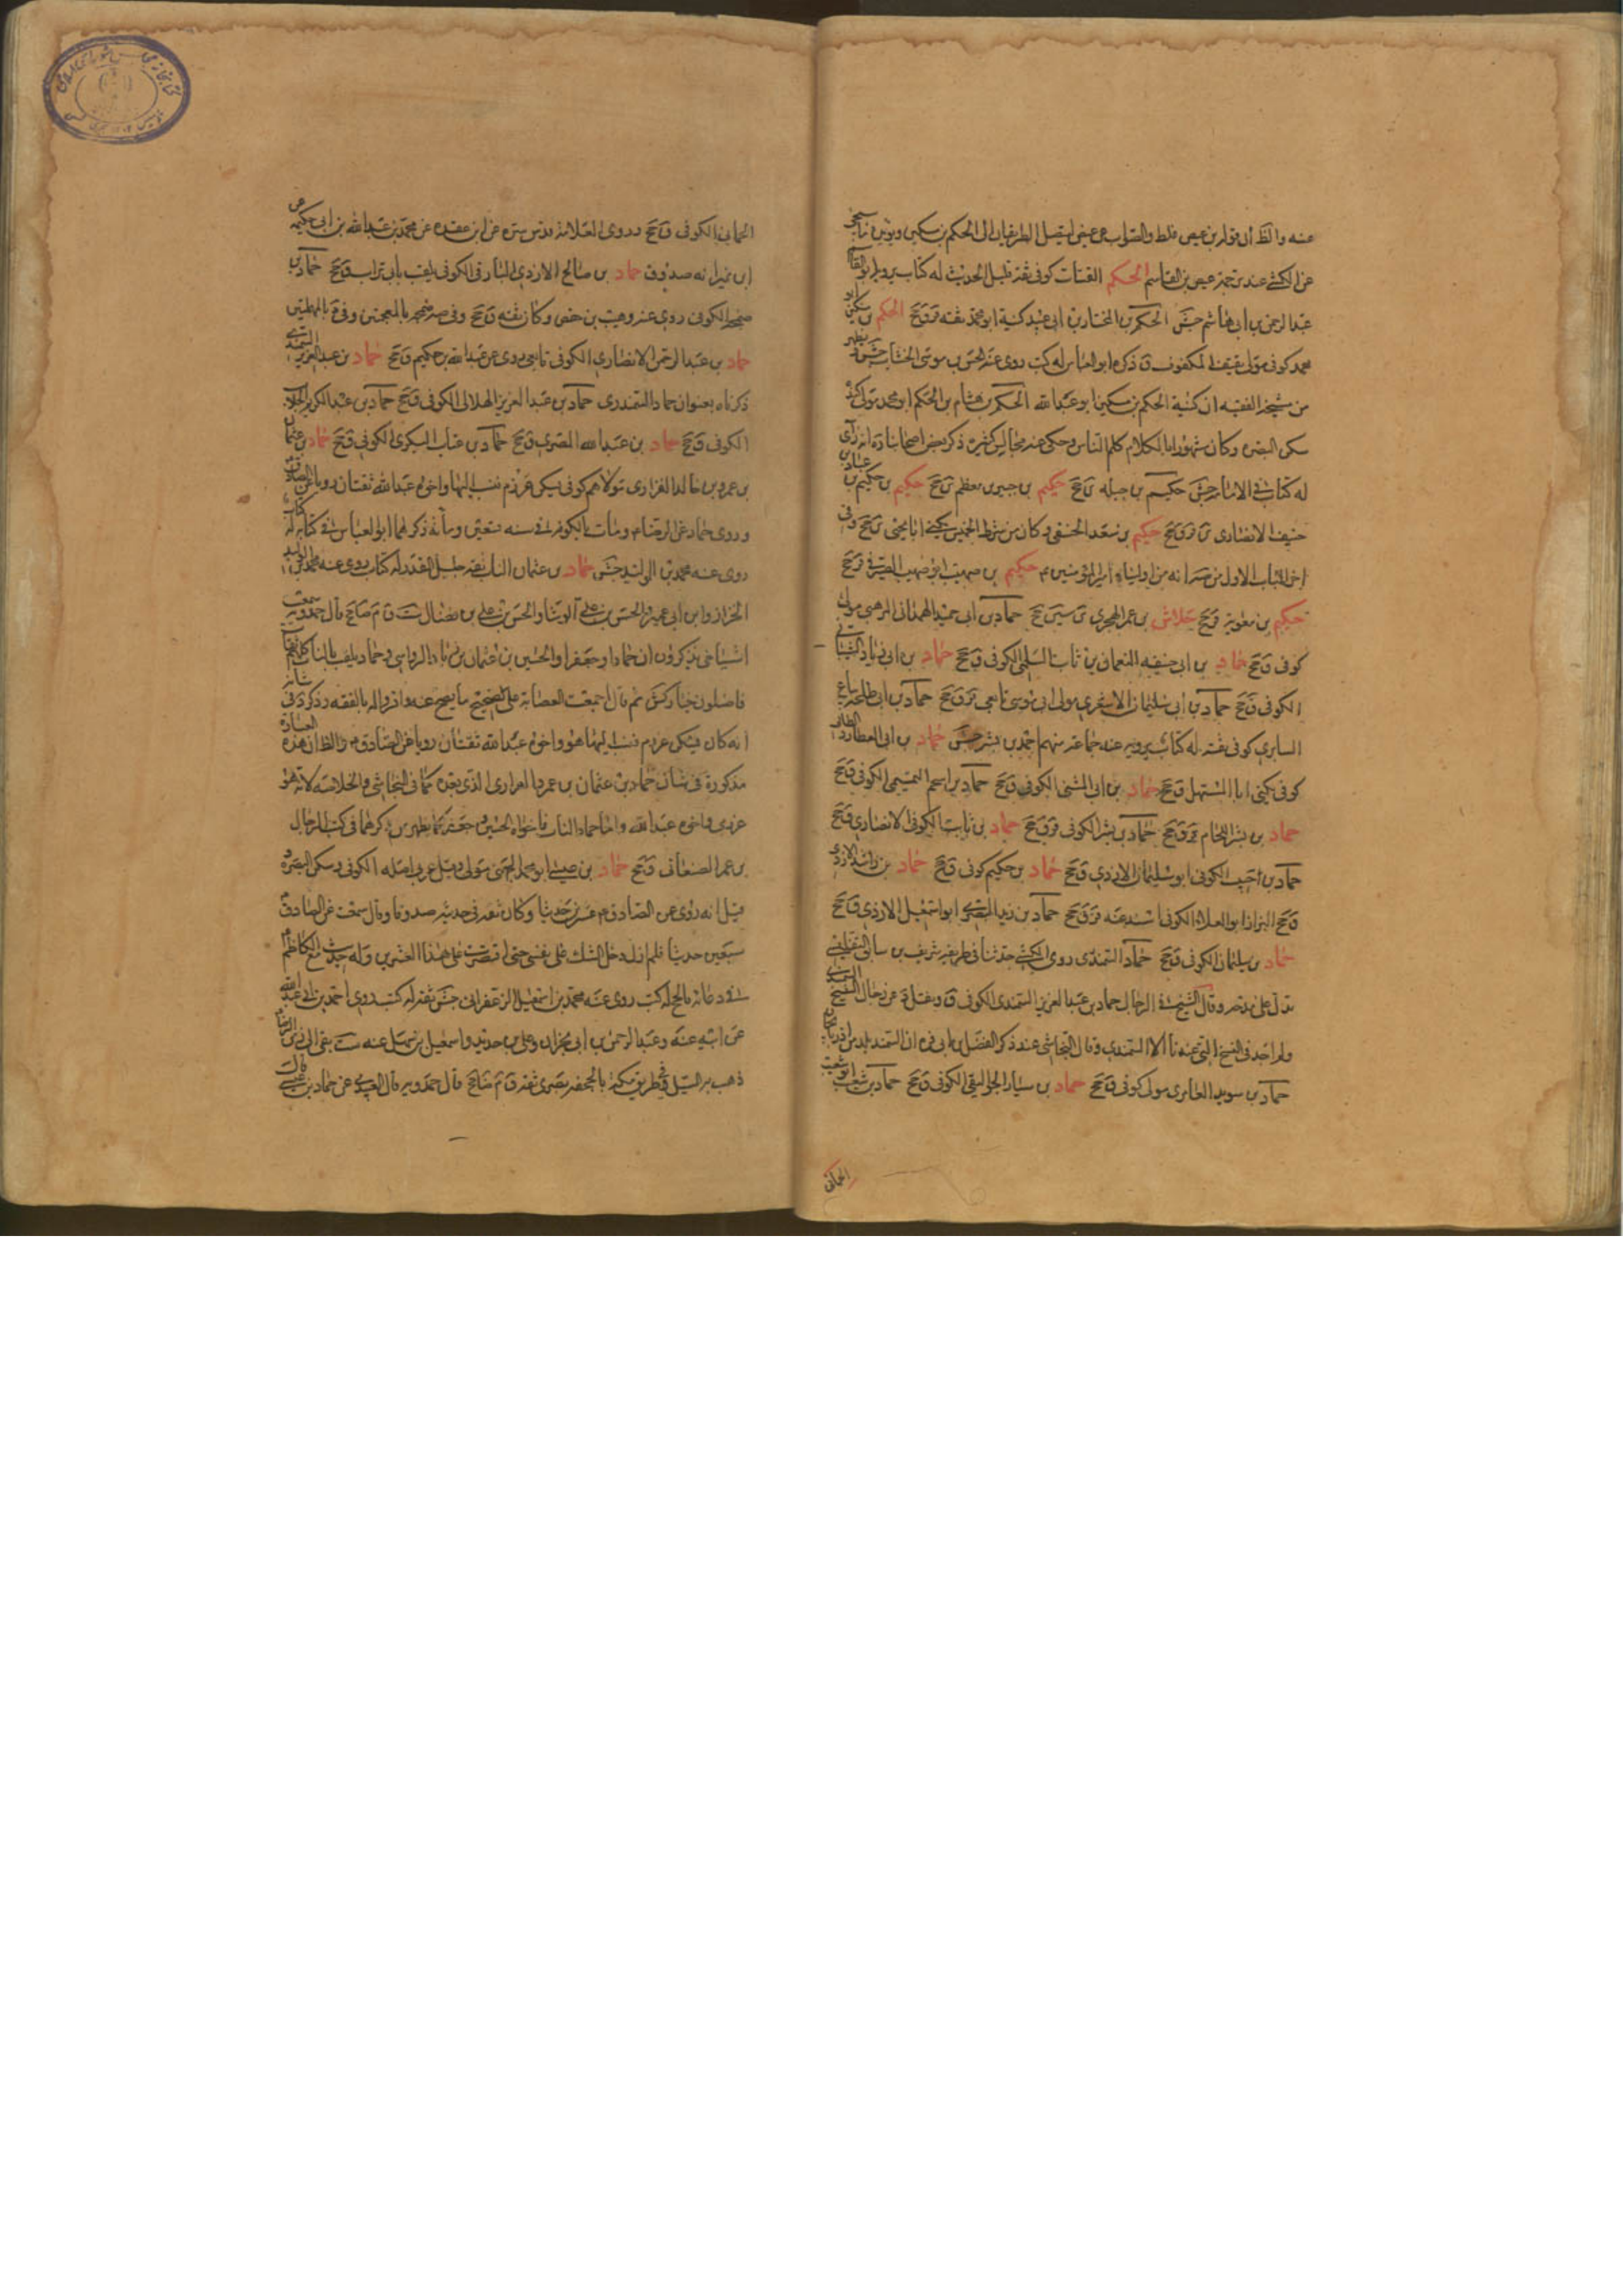 عنه والظ أن قوله بن عيص غلط والصواب عن عيص الطريقان الى الحكم بن مسكين
عن الكشى عند ترجمة عيص بن القاسم الحكم القتات كوفى ثقة قليل الحديث له كتاب يرويه
عبد الرحمن بن ابى هاشم جش الحكم بن المختار بن ابى عبيد كنيته ابو محمد ثقه قر ق جخ الحكم بن مسكين ابو
محمد كوفى مولى ثقيف المكفوف ذكره ابو العباس له كتب روى عنه الحسن بن موسى الخشاب جش
من مشيخة الفقيه ان كنية الحكم بن مسكين ابو عبد الله الحكم بن هشام بن الحكم ابو محمد مولى كنده
سكن البصره وكان مشهورا بالكلام كلم الناس وحكى عنه مجالس كثيرة ذكر بعض اصحابنا ره انه رأى
له كتابا فى الامامة جش حكيم بن جبله ى جخ حكيم بن جبير بن مطعم ين جخ حكيم بن حكيم بن عباد بن
حنيف الانصارى ين قر ق جخ حكيم بن سعد الحنفى وكان من شرطة الخميس يكنى ابا يحيى ى جخ وفى
اخر الباب الاول من صه انه من اولياء امير المؤمنين ع حكيم بن صهيب ابو صهيب الصيرفى قر جخ
حكيم بن معويه قر جخ حلاش بن عمر الهجرى ى سين جخ حماد بن ابى حميد الهمدانى المرهبى مولى
كوفى ق جخ حماد بن ابى حنيفه النعمان بن ثابت السلمى الكوفى ق جخ حماد بن ابى زياد الشيبانى
الكوفى ق جخ حماد بن ابى سليمان الاشعرى مولى ابى موسى تابعى قر ق جخ حماد بن ابى طلحة بياع
السابرى كوفى ثقة له كتاب يرويه عنه جماعة منهم احمد بن بشر جش حماد بن ابى العطارد الطائى
كوفى يكنى ابا المستهل ق جخ حماد بن ابى المثنى الكوفى ق جخ حماد بن اسحم التميمى الكوفى ق جخ
حماد بن بشر اللحام قر ق جخ حماد بن بشر الكوفى قر ق جخ حماد بن ثابت الكوفى الانصارى ق جخ
حماد بن حبيب الكوفى ابو سليمان الازدى ق جخ حماد بن حكيم كوفى ق جخ حماد بن راشد الازدى
البزاز ابو العلاء الكوفى اسند عنه قر ق جخ حماد بن زيد البصرى ابو اسمعيل الازدى ق جخ
حماد بن سليمان الكوفى ق جخ حماد السمندرى روى الكشى حديثا فى طريقه شريف بن سابق التفليسى
تدل على مدحه وقال الشيخ فى الرجال حماد بن عبد العزيز السمندى الكوفى ق
ولم اجد فى النسخ التى عندنا الا السمندى وقال النجاشى عند ذكر الفضل بن ابى قره ان السمند بلد من اذربايجان
حماد بن سويد العامرى مولى كوفى ق جخ حماد بن سيار الجواليقى الكوفى ق جخ حماد بن شعيب ابو شعيب
الحمانى
الحمانى الكوفى ق جخ وروى العلامة قدس سره عن ابن عقده عن محمد بن عبد الله بن ابى حكيمه عن
ابن نمير انه صدوق حماد بن صالح الازدى البارقى الكوفى يلقب بابى تراب ق جخ حماد بن
ضمخه الكوفى روى عنه وهيب بن حفص وكان ثقه ق جخ وفى صه ضمخه بالمعجمتين وفى د بالمهملتين
حماد بن عبد الرحمن الانصارى الكوفى تابعى روى عن عبد الله بن حكيم ق جخ حماد بن عبد العزيز السمندى
ذكرناه بعنوان حماد السمندرى حماد بن عبد العزيز الهلالى الكوفى ق جخ حماد بن عبد الكريم الجلاب
الكوفى ق جخ حماد بن عبد الله المصرى ق جخ حماد بن عتاب البكرى الكوفى ق جخ حماد بن عثمان
بن عمرو بن خالد الفزارى مولاهم كوفى يسكن عرزم فنسب اليها واخوه عبد الله ثقتان رويا عن الصادق ع
وروى حماد عن الرضا ع ومات بالكوفه فى سنه تسعين ومأة ذكرهما ابو العباس فى كتابه له كتاب
روى عنه محمد بن الوليد جش حماد بن عثمان الناب ثقة جليل القدر له كتاب روى عنه محمد بن الوليد
الخزاز وابن ابى عمير والحسن بن على الوشا والحسن بن على بن فضال ست ق م ضا جخ قال حمدويه سمعت
اشياخى يذكرون ان حمادا وجعفرا والحسين بن عثمان بن زياد الرواسى وحماد يلقب بالناب كلهم ثقات
فاضلون خيار كش ثم قال اجمعت العصابة على تصحيح ما يصح عنه واقروا له بالفقه وذكر د فى شانه
انه كان يسكن عرزم فنسب اليها هو واخوه عبد الله ثقتان رويا عن الصادق ع والظ ان هذه العبارة
مذكورة فى شان حماد بن عثمان بن عمرو الفزارى الذى تقدم كما فى النجاشى والخلاصه لانه هو
عرزمى واخوه عبد الله واما حماد الناب فاخواه الحسين وجعفر كما يظهر من ذكرهما فى كتب الرجال
بن عمر الصنعانى ق جخ حماد بن عيسى ابو محمد الجهنى مولى وقيل عربى اصله الكوفى وسكن البصره و
قيل انه روى عن الصادق ع عشرين حديثا وكان ثقه فى حديثه صدوقا وقال سمعت عن الصادق ع
سبعين حديثا فلم ازل ادخل الشك على نفسى حتى اقتصرت على هذا العشرين وله حديث مع الكاظم ع
فى دعائه بالحج له كتب روى عنه محمد بن اسمعيل الزعفرانى جش ثقة له كتب روى احمد بن ابى عبد الله
عن ابيه عنه وعبد الرحمن بن ابى نجران وعلى بن حديد واسمعيل بن سهل عنه ست بقى الى زمن الرضا ع
ذهب به السيل فى طريق مكه بالجحفه بصرى ثقة ق م ضا جخ قال حمدويه قال العبيدى عن حماد بن عيسى قال